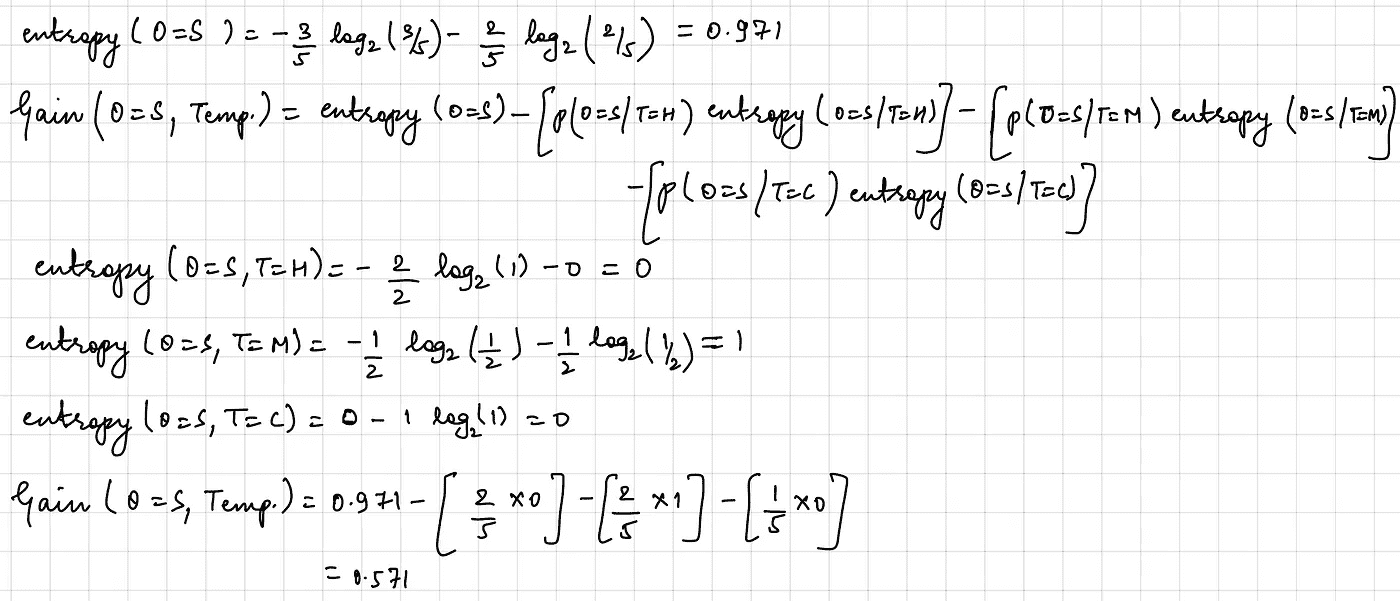 entropy (O=S ) = -3/5 log₂(3/5) - 2/5 log₂(2/5) = 0.971
Gain (O=S, Temp.) = entropy (O=S) - [p(O=S/T=H) entropy (O=S/T=H)] - [p(O=S/T=M) entropy (O=S/T=M)]
-[p(O=S/T=C) entropy (O=S/T=C)]
entropy (O=S, T=H) = - 2/2 log₂(1) - 0 = 0
entropy (O=S, T=M) = -1/2 log₂(1/2) - 1/2 log₂(1/2) = 1
entropy (O=S, T=C) = 0 - 1 log₂(1) = 0
Gain (O=S, Temp.) = 0.971 - [2/5 ×0] - [2/5 ×1] - [1/5 ×0]
= 0.571